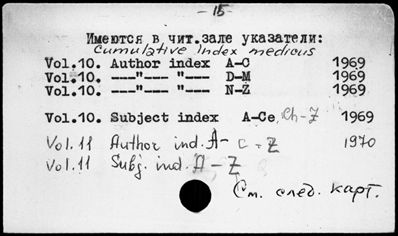 - 15 -
Имеются в чит.зале указатели:
Cumulative Index medicus
Vol.10. Author index A-C 1969
Vol.10. ---"--- "--- D-M 1969
Vol.10. ---"--- "--- N-Z 1969
Vol.10. Subject index A-Ce, Ch-Z 1969
Vol.11 Author ind. A- C - Z 1970
Vol.11 Subj. ind. A - Z
См. след. карт.